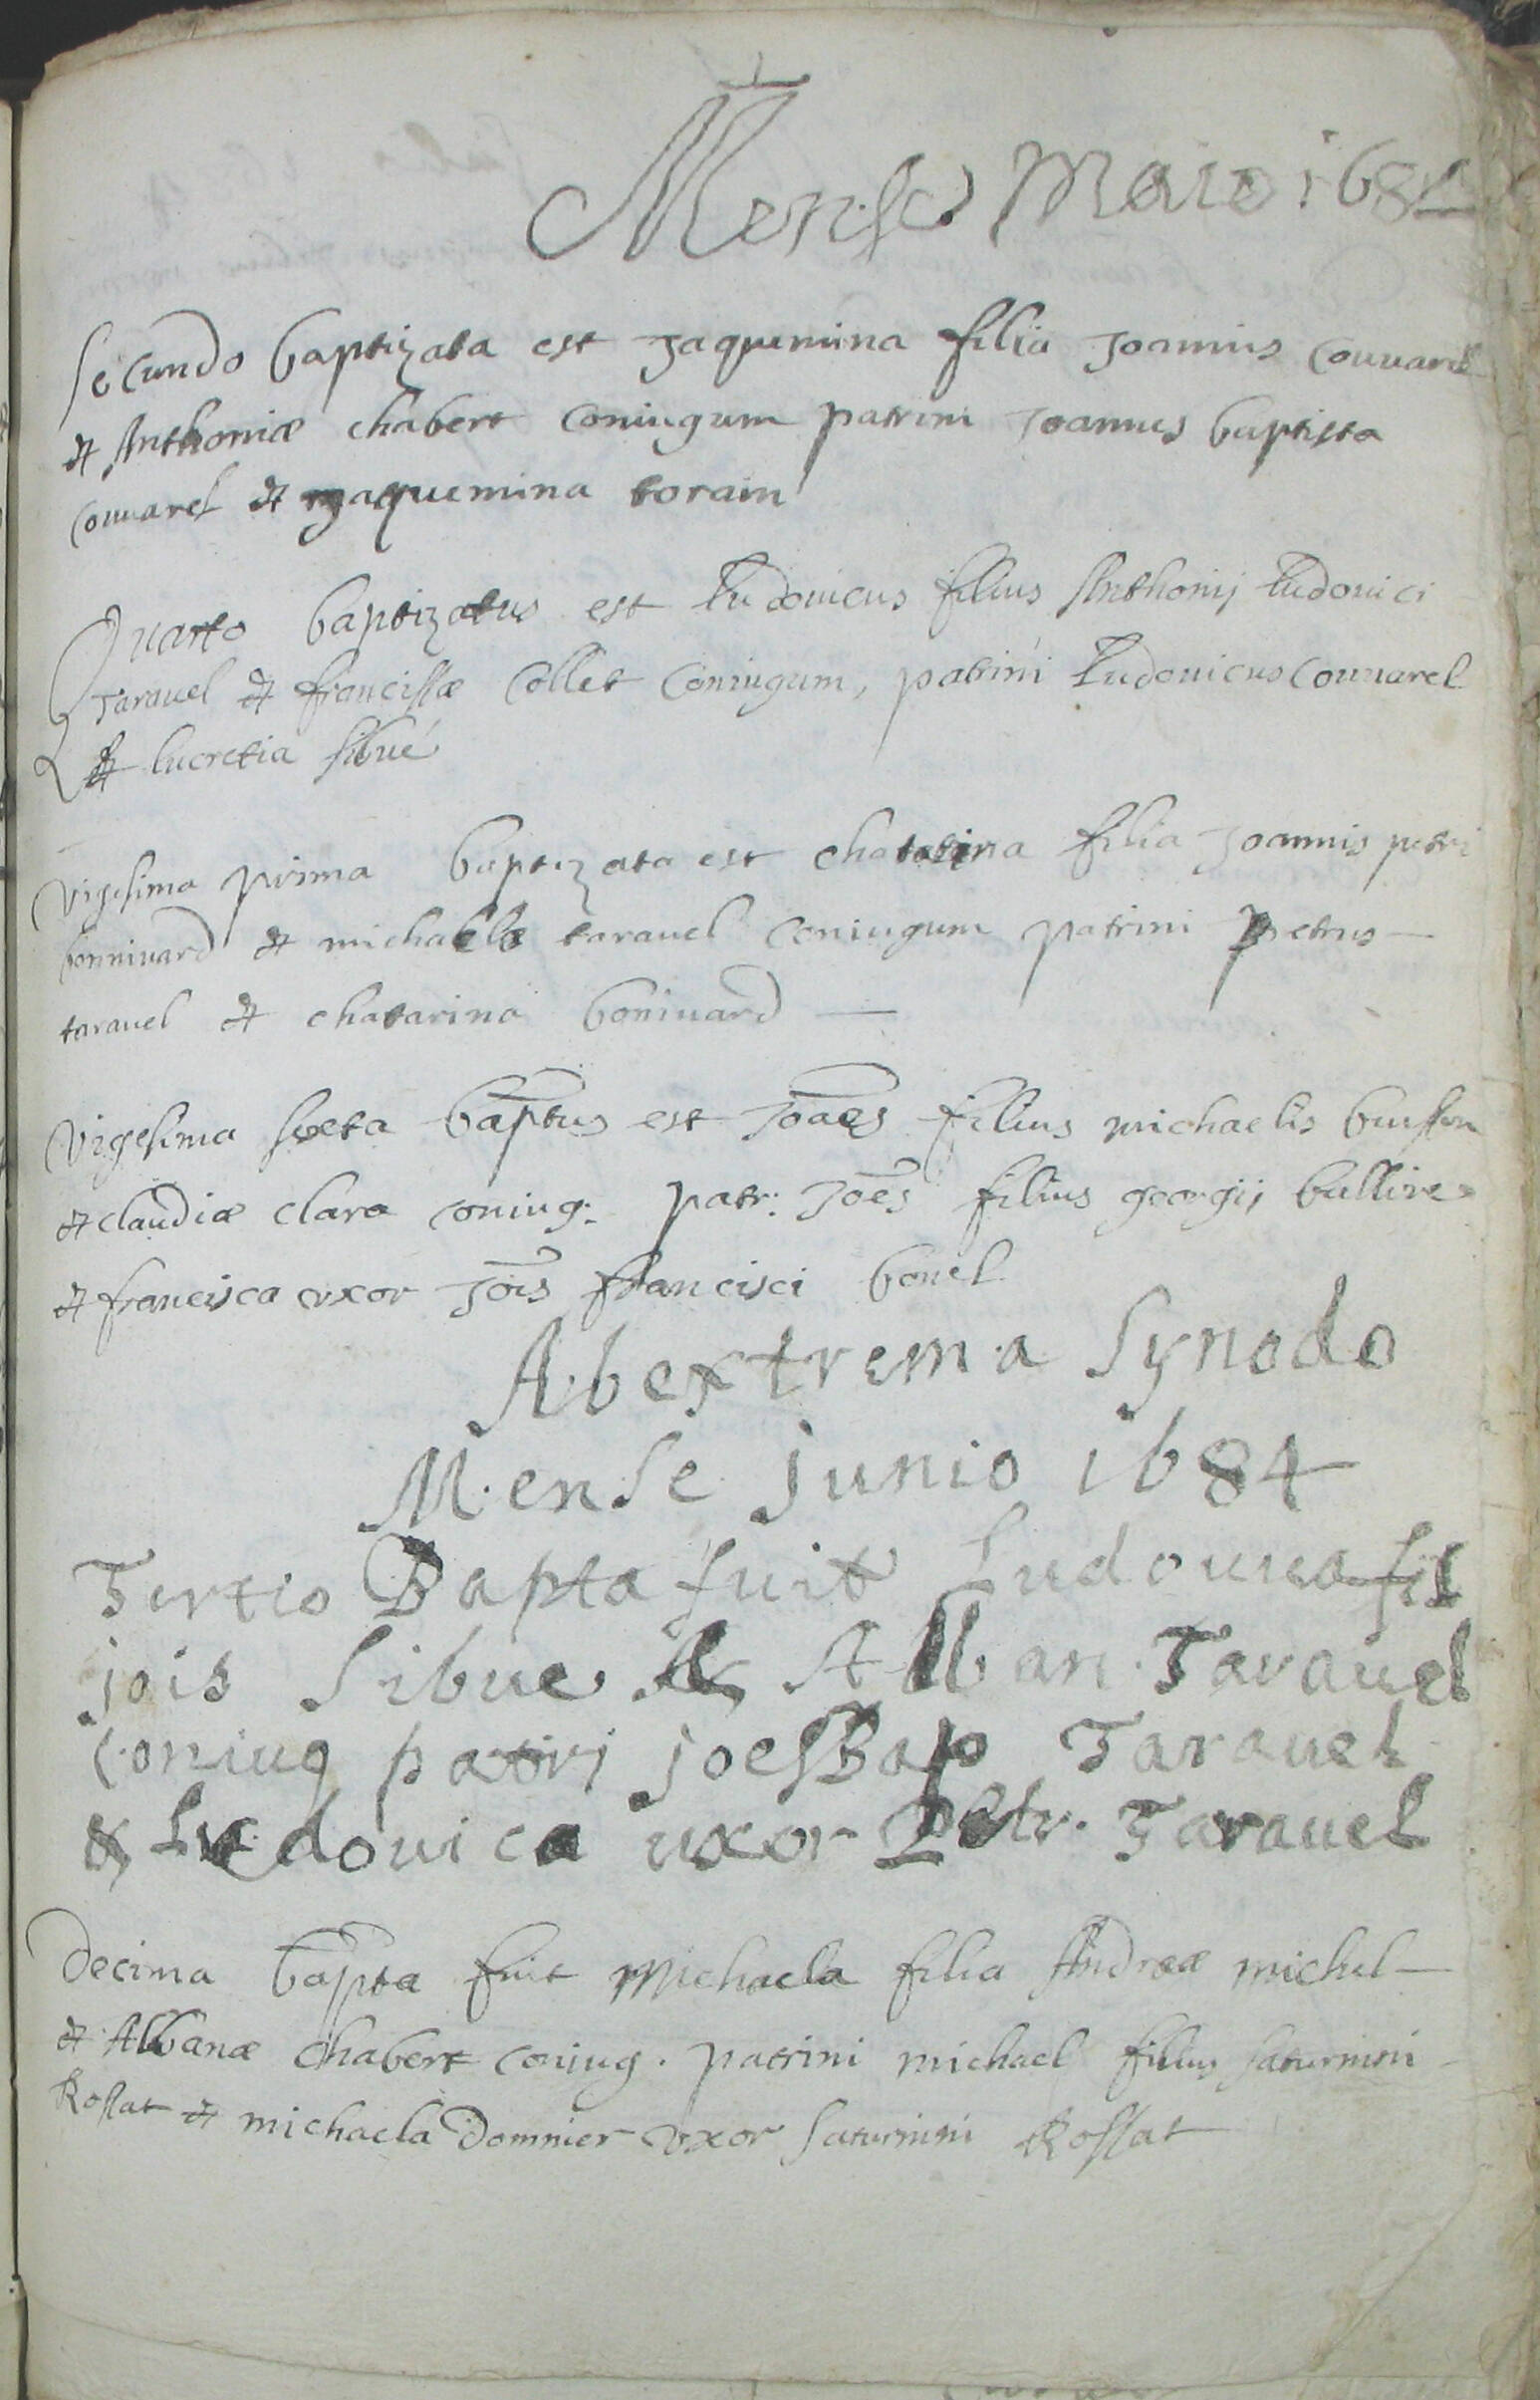 Mense Maio 1684
Secundo baptizata est Jaquemina filia Joannis Couuarel
et Anthoniæ chabert Coniugum patrini Joannes baptista
Couuarel et Jaquemina torain
Quarto baptizatus est Ludouicus filius Anthonij Ludouici
Tarauel et francissæ Collet Coniugum, patrini Ludouicus Couuarel
et lucretia sibué
Vigesima prima baptizata est chatarina filia Joannis petri
bonniuard et michaele tarauel Coniugum patrini petrus
tarauel et chatarina boniuard
Vigesima sexta bap̄tus est Joāes filius michaelis buisson
et claudiæ clara coniug: patr: Jōes filius georgij ballire
et francisca vxor Jōis francisci bonel
Ab extrema Synodo
Mense Junio 1684
Tertio Bapta fuit Ludouica fil
jois Sibue & Alban Tarauel
Coniug patri joes Bap Tarauel
& Ludouica uxor Petr. Tarauel
Decima bap̄ta fuit Michaela filia Andreæ michel
et Albanæ chabert coniug. patrini michael filius saturnini
Rossat et michaela Domnier vxor saturnini Rossat